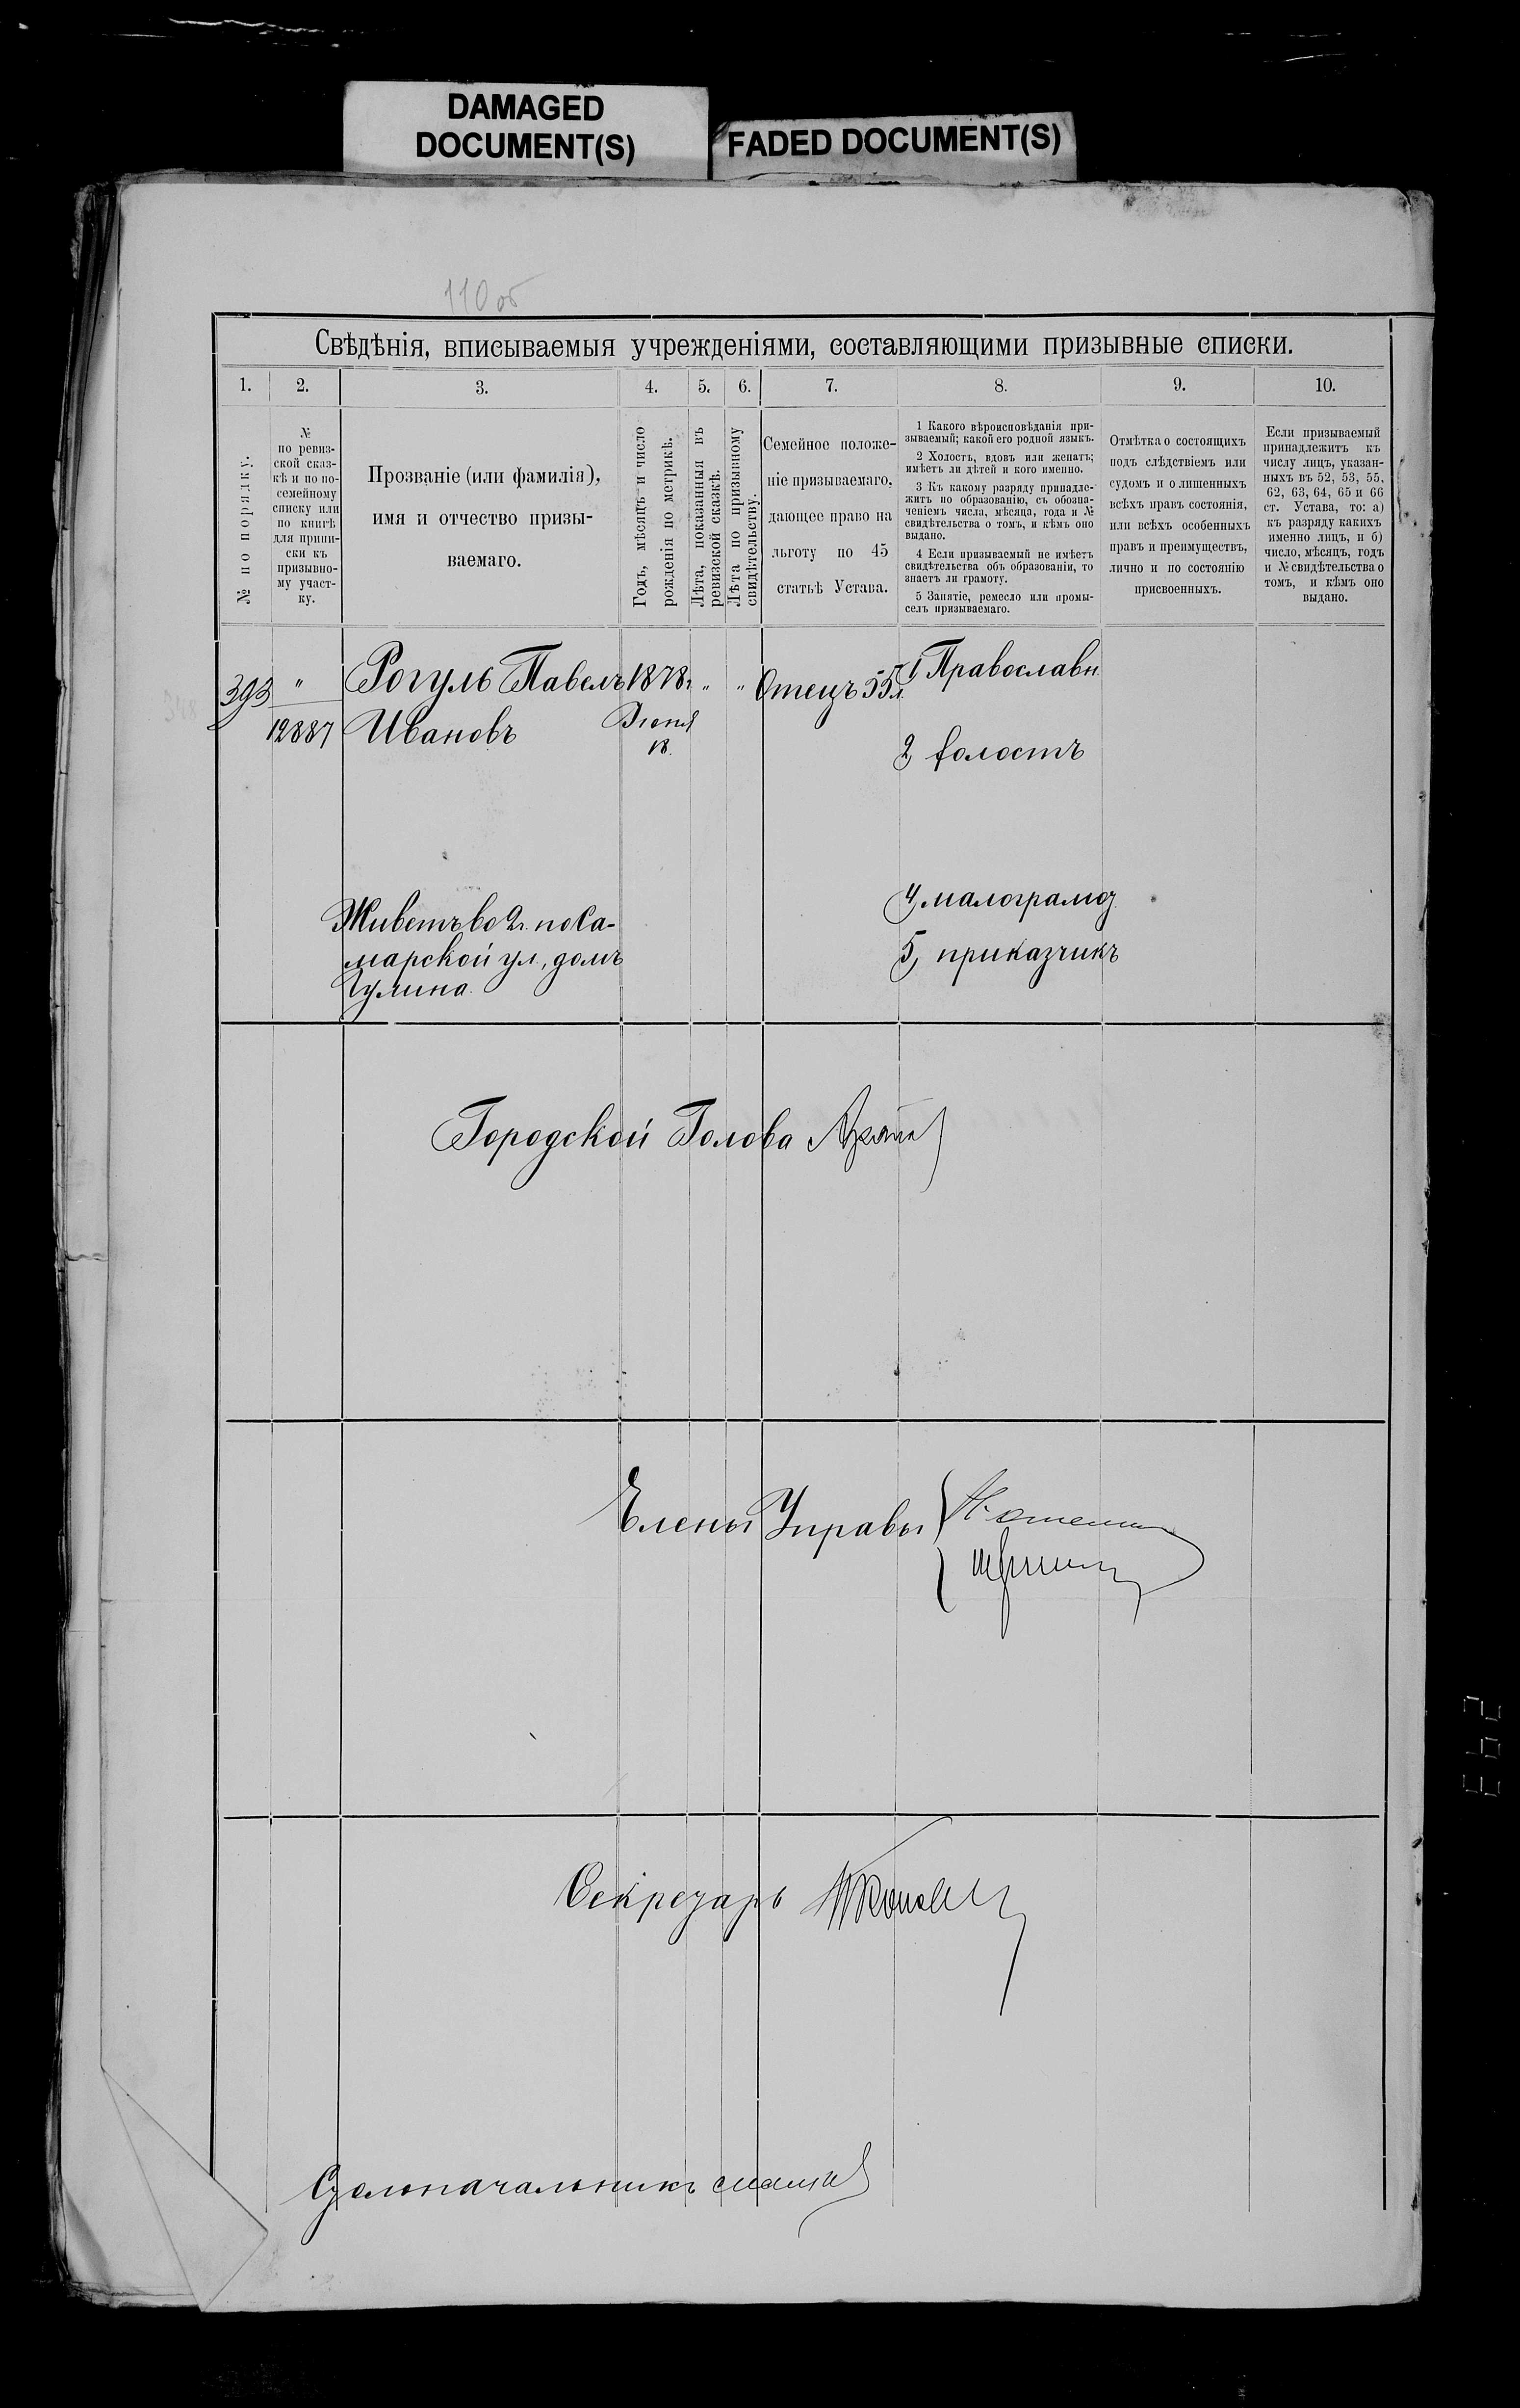 DAMAGED
DOCUMENT(S)
FADED DOCUMENT(S)
110 об
Свѣдѣнія, вписываемыя учрежденіями, составляющими призывные списки.
1. 2. 3. 4. 5. 6. 7. 8. 9. 10.
№ по порядку.
№
по ревиз-
ской сказ-
кѣ и по по-
семейному
списку или
по книгѣ
для припи-
ски къ
призывно-
му участ-
ку.
Прозваніе (или фамилія),
имя и отчество призы-
ваемаго.
Годъ, мѣсяцъ и число
рожденія по метрикѣ.
Лѣта, показанныя въ
ревизской сказкѣ.
Лѣта по призывному
свидѣтельству.
Семейное положе-
ніе призываемаго,
дающее право на
льготу по 45
статьѣ Устава.
1 Какого вѣроисповѣданія при-
зываемый; какой его родной языкъ.
2 Холостъ, вдовъ или женатъ;
имѣетъ ли дѣтей и кого именно.
3 Къ какому разряду принадле-
житъ по образованію, съ обозна-
ченіемъ числа, мѣсяца, года и №
свидѣтельства о томъ, и кѣмъ оно
выдано.
4 Если призываемый не имѣетъ
свидѣтельства объ образованіи, то
знаетъ ли грамоту.
5 Занятіе, ремесло или промы-
селъ призываемаго.
Отмѣтка о состоящихъ
подъ слѣдствіемъ или
судомъ и о лишенныхъ
всѣхъ правъ состоянія,
или всѣхъ особенныхъ
правъ и преимуществъ,
лично и по состоянію
присвоенныхъ.
Если призываемый
принадлежитъ къ
числу лицъ, указан-
ныхъ въ 52, 53, 55,
62, 63, 64, 65 и 66
ст. Устава, то: а)
къ разряду какихъ
именно лицъ, и б)
число, мѣсяцъ, годъ
и № свидѣтельства о
томъ, и кѣмъ оно
выдано.
393 " Рогуль Павелъ 1878г. " " Отецъ 55 л. 1, Православн
12887 Ивановъ Іюня
18.
2, холостъ
4, малограмот.
Живетъ во 2ч. по Са-
марской ул., домъ
5, приказчикъ
Гулина.
Городской Голова
Члены Управы
Секретарь
Столоначальникъ
293